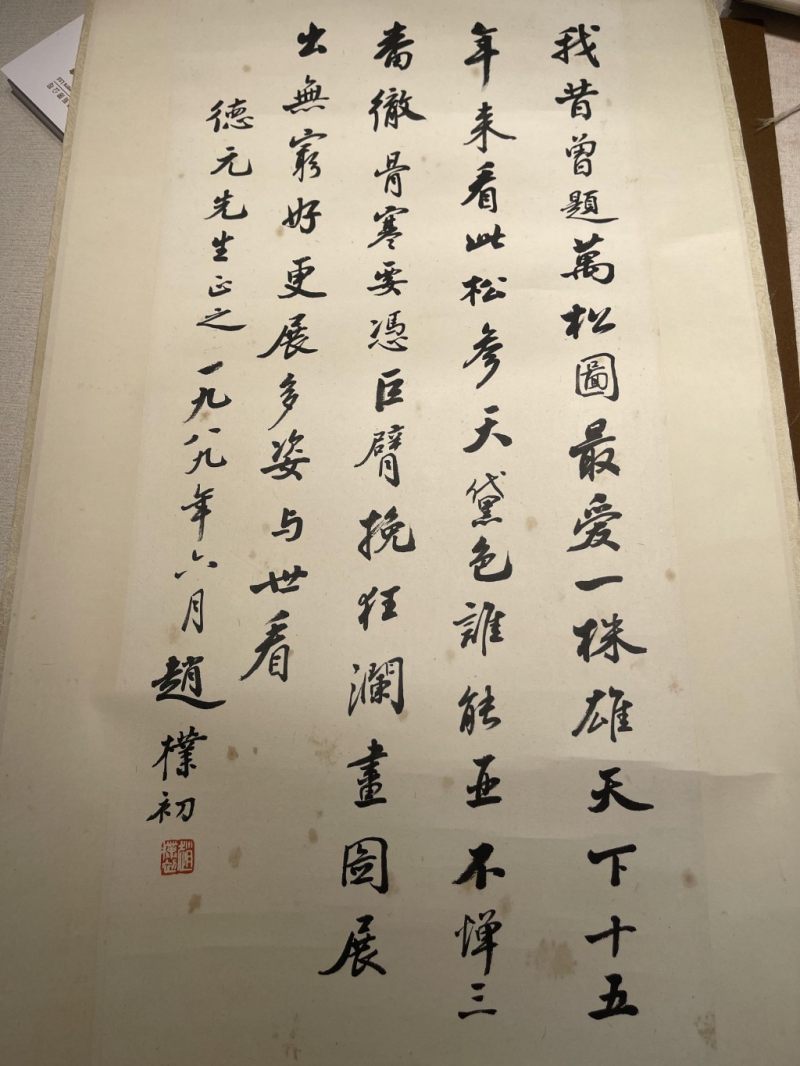 我昔曾題萬松圖最爱一株雄天下十五
年来看此松參天黛色誰能亚不惮三
番徹骨寒要憑巨臂挽狂瀾畫圖展
出無窮好更展多姿与世看
德元先生正之一九八九年六月趙樸初